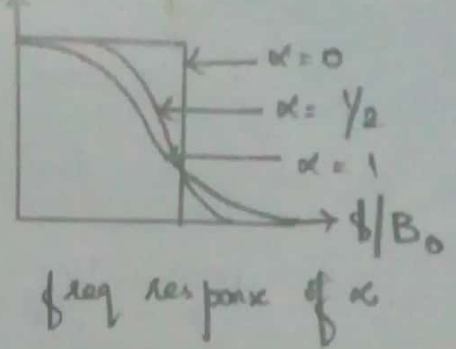 α = 0
α = 1/2
α = 1
f/B₀
freq response of α